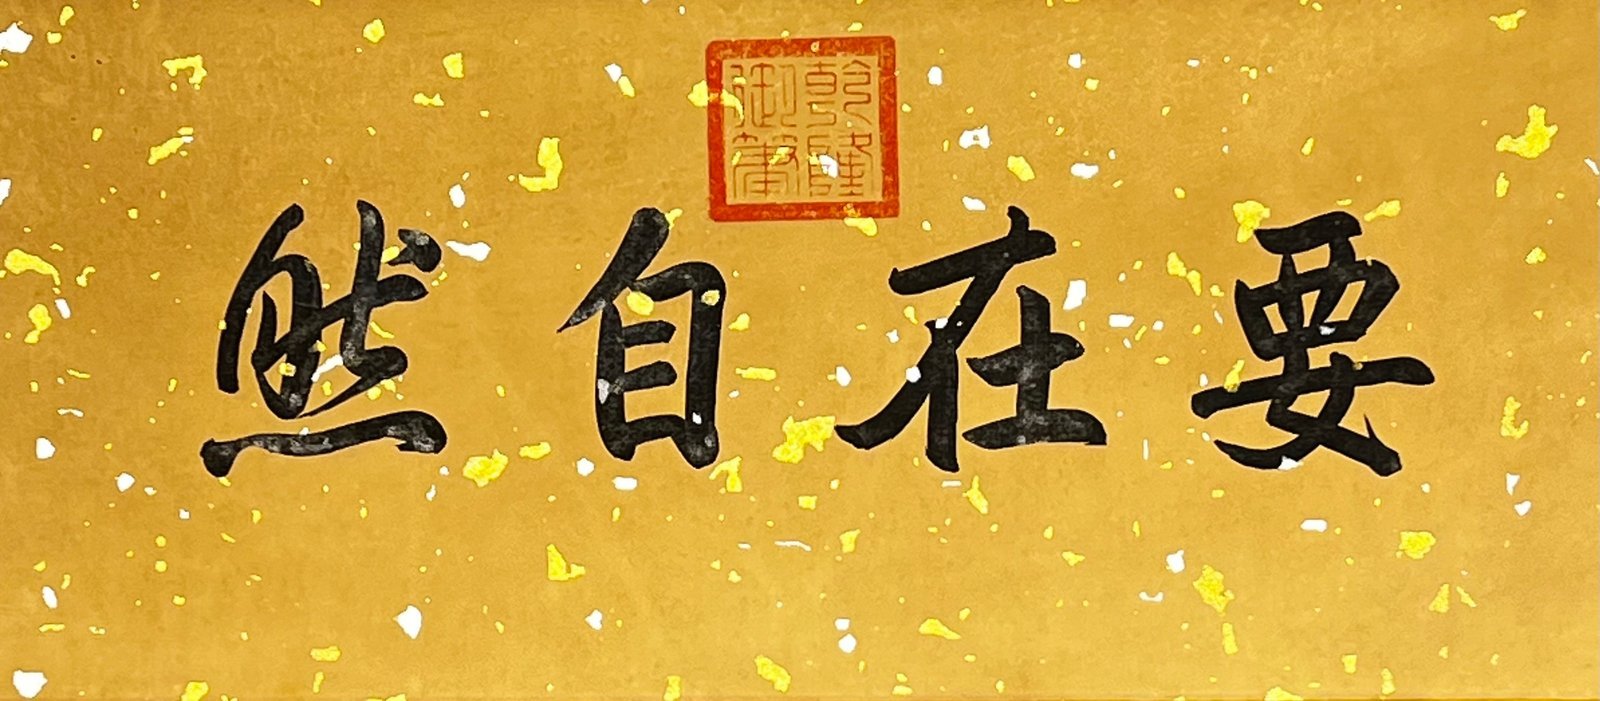 乾隆
御筆
要在自然